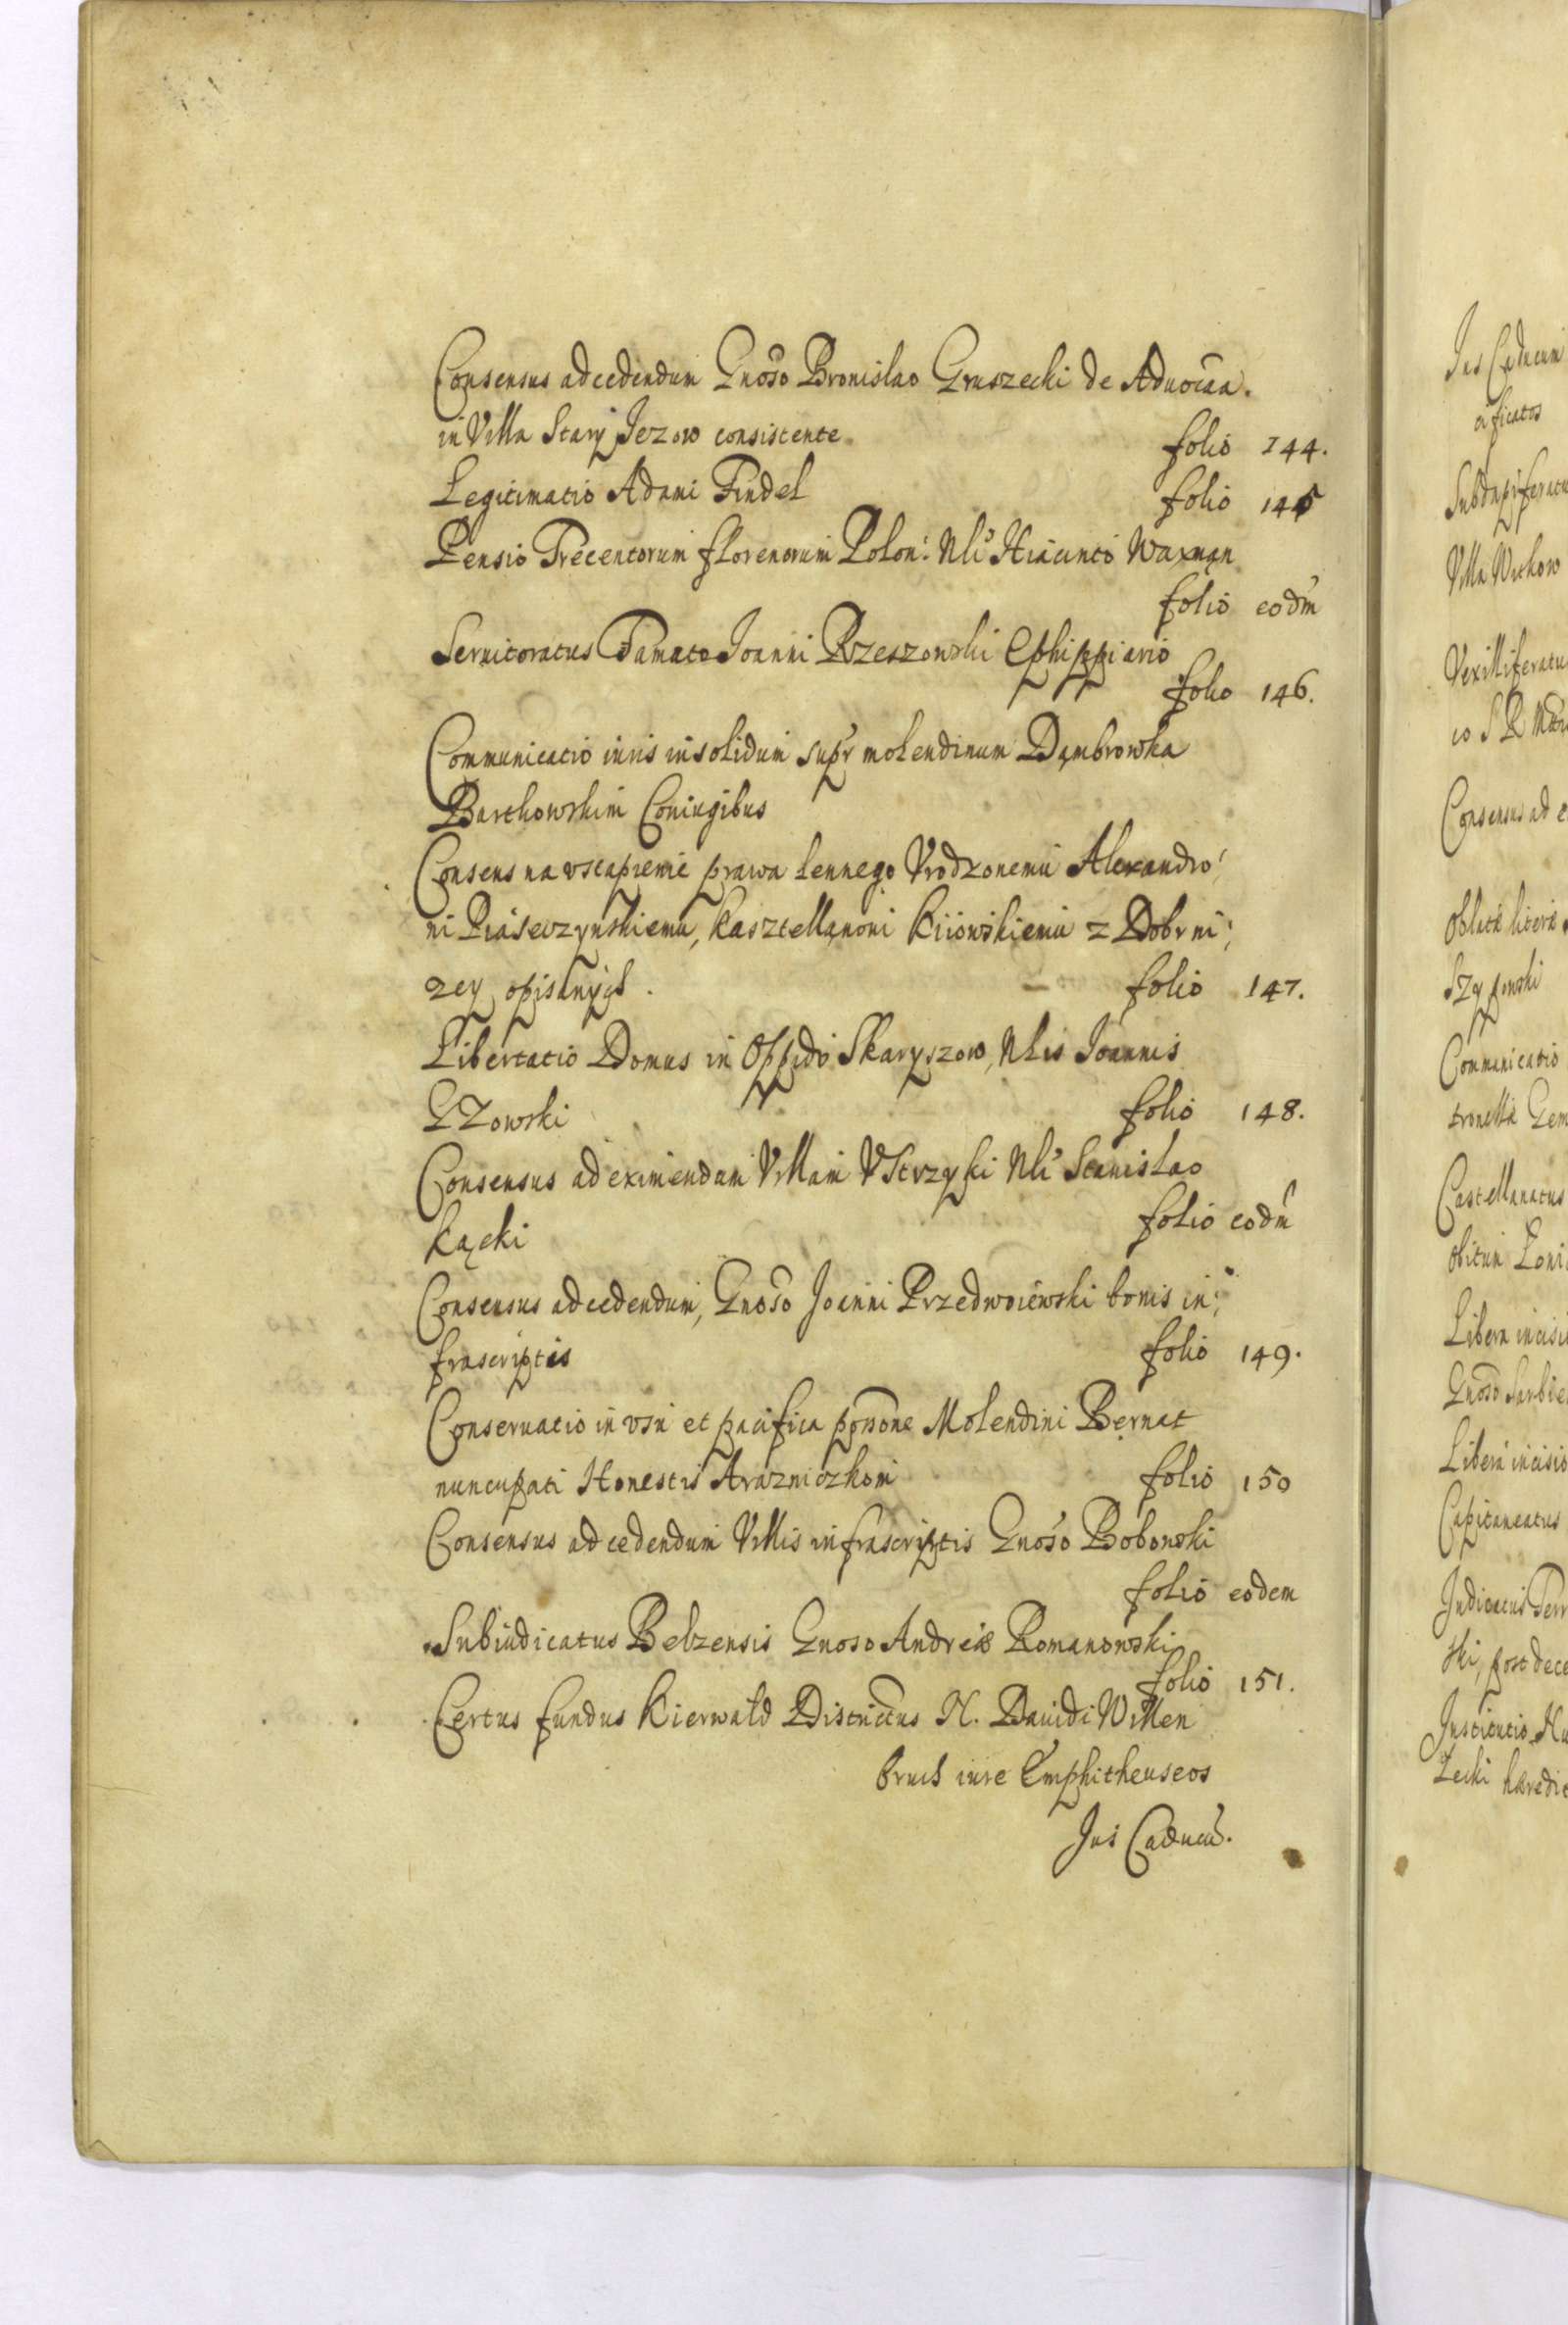 Consensus ad cedendum Gnoso Bronislao Gruszecki de Aduocãa.
in Villa Stary Jezow consistente folio 144.
Legitimatio Adami Findel folio 145
Pensio Trecentorum florenorum Polon: Nli Hiacinto Waxman
folio eodm
Seruitoratus Famato Joanni Rzeszowski Ephippiario
folio 146.
Communicatio iuris in solidum supr molendinum Dąmbrowka
Bartkowskim Coniugibus
Consens na vstąpienie prawa lennego Vrodzonemu Alexandro:
ni Piaseczynskiemu, Kasztellanoni Kiiowskiemu z Dobr ni:
zey opisanych. folio 147.
Libertatio Domus in Oppido Skaryszow, Nlis Joannis
GZowski folio 148.
Consensus ad eximendam Villam VStrzyki Nli Stanislao
Kącki folio eodm
Consensus ad cedendum, Gnoso Joanni Przedwoiewski bonis in:
frascriptis folio 149.
Conseruatio in vsu et pacifica ppssone Molendini Bernat
nuncupati Honestis Arazniczkom folio 150
Consensus ad cedendum Villis infrascriptis Gnoso Bobowski
folio eodem
Subiudicatus Belzensis Gnoso Andreæ Romanowski
folio 151.
Certus fundus Kierwald Districtus N. Dauidi Willen
bruch iure Emphitheuseos
Jus Caducũ.
Jus Caducum
Villa Wichow
Vexilliferatu
Consensus ad c
Oblata litera
Communicatio
Castellanatus
obitum
Libera incisi
Gnoso Sarbie
Libera incisio
Capitaneatus
Judicatus Terr
ski, post dece
Institutio